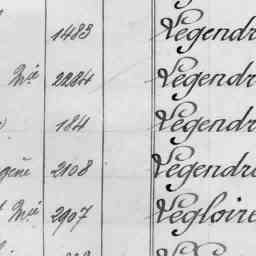 1483 Legendr
Mie 2284 Legendr
184 Legendr
gène 2108 Legendre
Mie 2907 Legloire